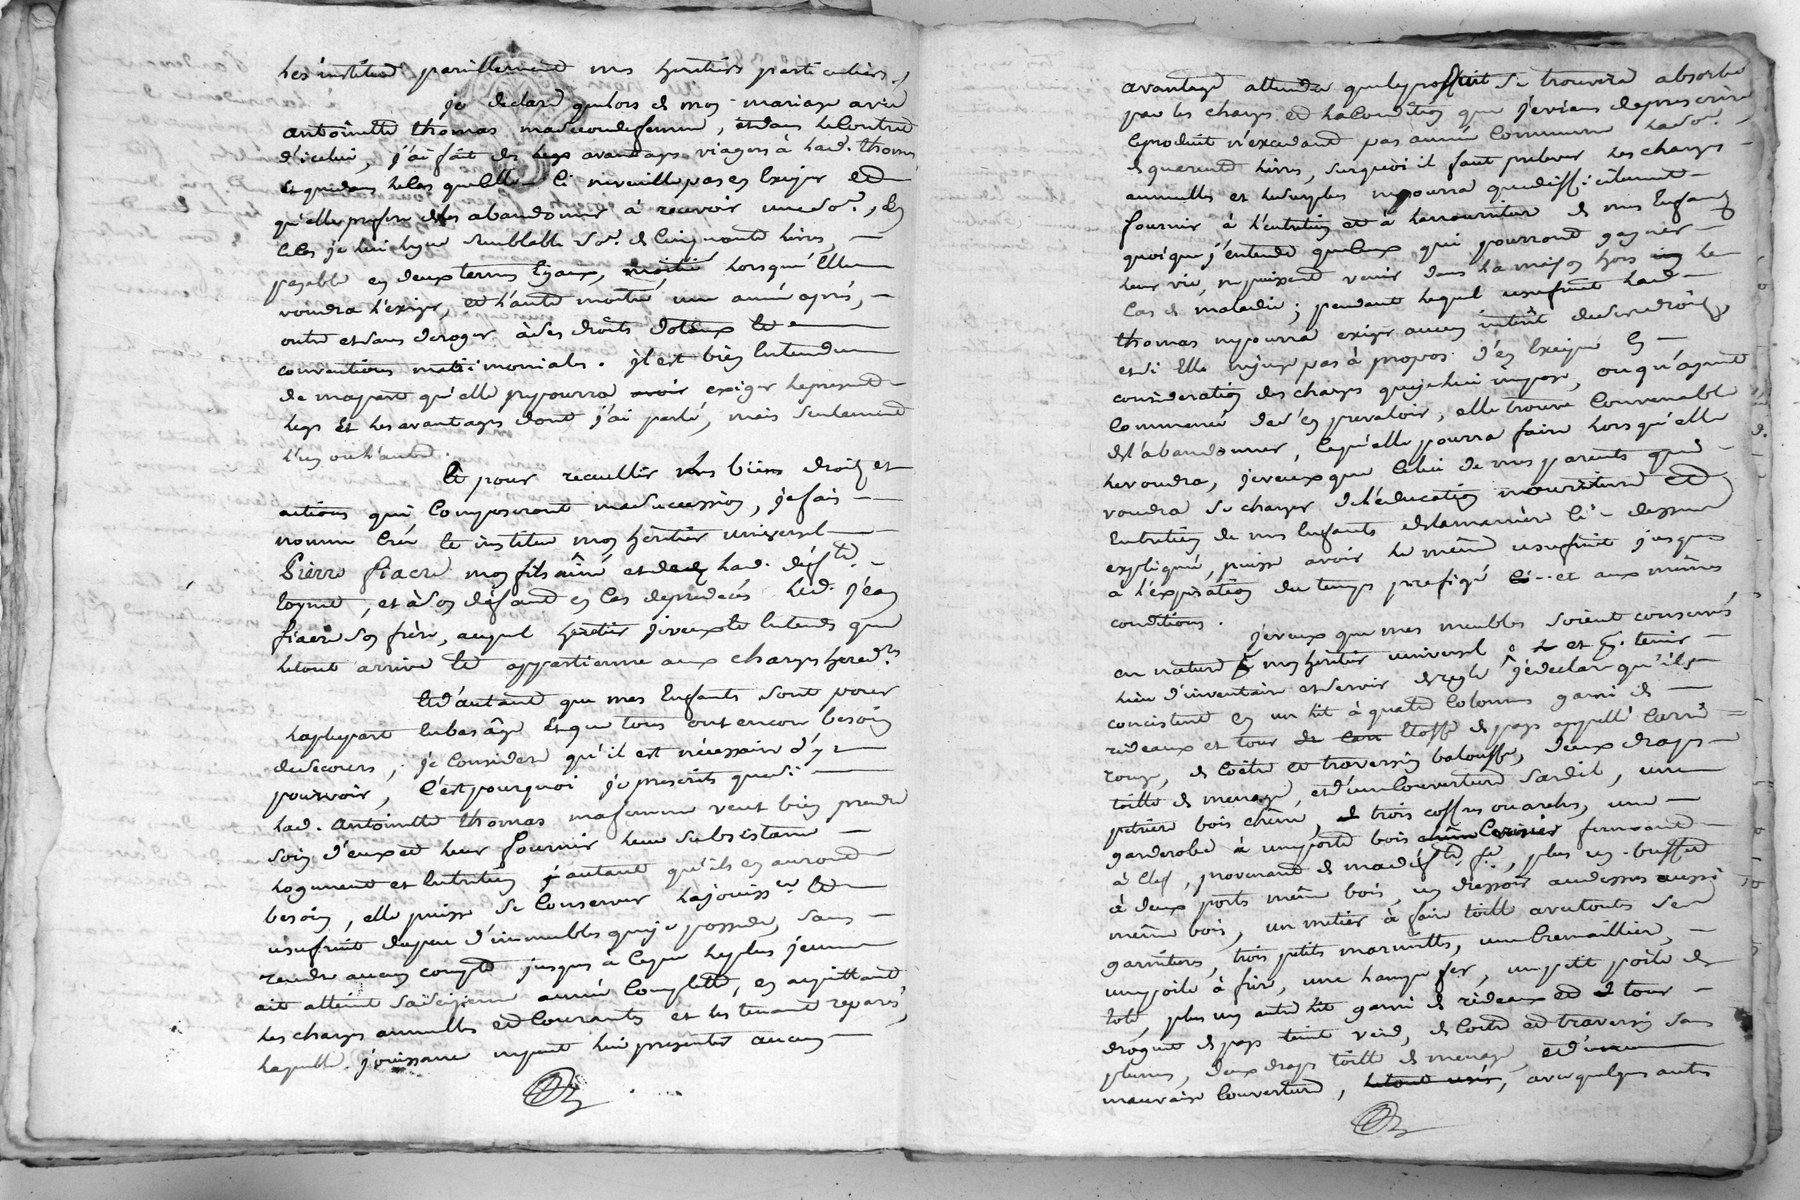 les institue pareillement mes heritiers particuliers.
je declare que lors de mon mariage avec
antoinette thomas ma seconde femme, et dans le contrat
d'icelui, j'ai fait des legs avantages viagers à lad. thomas
et que dans le cas qu'elle ne veuille pas en exiger et
qu'elle prefere les abandonner à recevoir une so.e, en
ce cas je lui legue semblable so.e de cinquante livres,
payable en deux termes egaux, moitié lorsqu'elle
voudra l'exiger, et l'autre moitié une année après,
outre et sans deroger à ses droits dotaux et
conventions matrimoniales. il est bien entendu
de ma part qu'elle ne pourra exiger le present
legs et les avantages dont j'ai parlé, mais seulement
l'un ou l'autre.
Et pour recueillir mes biens droits et
actions qui composeront ma succession, je fais
nomme crée et institue mon heritier universel
Pierre fiacre mon fils aîné et de lad. deff.te
, et à son defaut en cas de predecés led. jean
fiacre son frère, auquel heritier je veux et entends que
le tout arrive et appartienne aux charges hered.res
Et d'autant que mes enfants sont pour
la plupart en bas âge et que tous ont encore besoin
de secours, je considere qu'il est nécessaire d'y
pourvoir, c'est pourquoi je prescrits que si
lad. antoinette thomas ma femme veut bien prendre
soin d'eux et leur fournir leur subsistance
logement et entretien j'autant qu'ils en auront
besoin, elle puisse se conserver la jouiss.ce et
usufruit du peu d'immeubles que je possede, sans
rendre aucun compte jusques à ce que le plus jeune
ait atteint sa dixieme année complette, en acquittant
les charges annuelles et courantes et les tenant reparés,
laquelle jouissance ne peut lui presenter aucun
avantage attendu que le produit se trouvera absorbé
par les charges et la condition que je viens de prescrire
le produit n'excedant pas année commune la so.e
de quarente livres, surquoi il faut prelever les charges
annuelles et le surplus ne pourra que difficilement
fournir à l'entretien et à la nourriture de mes enfans
quoique j'entende que ceux qui pourront gagner
leur vie, ne puissent venir dans la maison hors le
cas de maladie; pendant lequel usufruit lad.
thomas ne pourra exiger aucun intérêt de ses droits,
et si elle ne juge pas à propos d'en exiger en
consideration des charges que je lui impose, ou qu'ayant
commencé de s'en prevaloir, elle trouve convenable
de l'abandonner, ce qu'elle pourra faire lorsqu'elle
le voudra, je veux que celui de mes parents qui
voudra se charger de l'éducation nourriture et
entretien de mes enfants de la manière ci-dessus
expliquée, puisse avoir le même usufruit jusques
a l'expiration du temps prefigé et aux mêmes
conditions.
je veux que mes meubles soient conservés
en nature mon heritier universel et p. tenir
lieu d'inventaire et servir de regle je declare qu'ils
consistent en un lit à quatre colonnes garni de
rideaux et tour de etoffe de pays appellé
rouge, de coëtre et traversin balouffe, deux draps
toille de menage, et d'une couverture sardil, une
petriere bois chêne, trois coffres ou arches, une
garderobe à une porte bois cerisier fermant
à clef, provenant de ma deff.te fe., plus un buffet
à deux portes même bois, un dressoir audessus aussi
même bois, un metier à faire toille avec touts ses
garnitures, trois petits marmitts, une cremaillier,
une poile à frire, une lampe fer, un petit poile de
tole, plus un autre lit garni de rideaux et tour
droguet de pays teint verd, de coitre et traversin sans
plumes, deux draps toille de menage, et d'une
mauvaise couverture, le tout usés, avec quelques autres